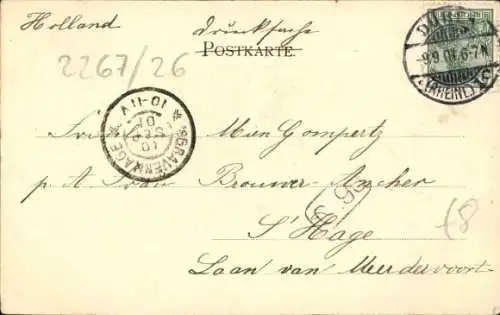 Holland
Drucksache
POSTKARTE.
2267/26
9.9.01.6-7N
(RHEIN)
'S GRAVENHAGE
10-11V
10 SEP 01
Mien Gompertz
p. A Frau Brouwer-Ancher
93
S'Hage
£8
Laan van Meerdervoort